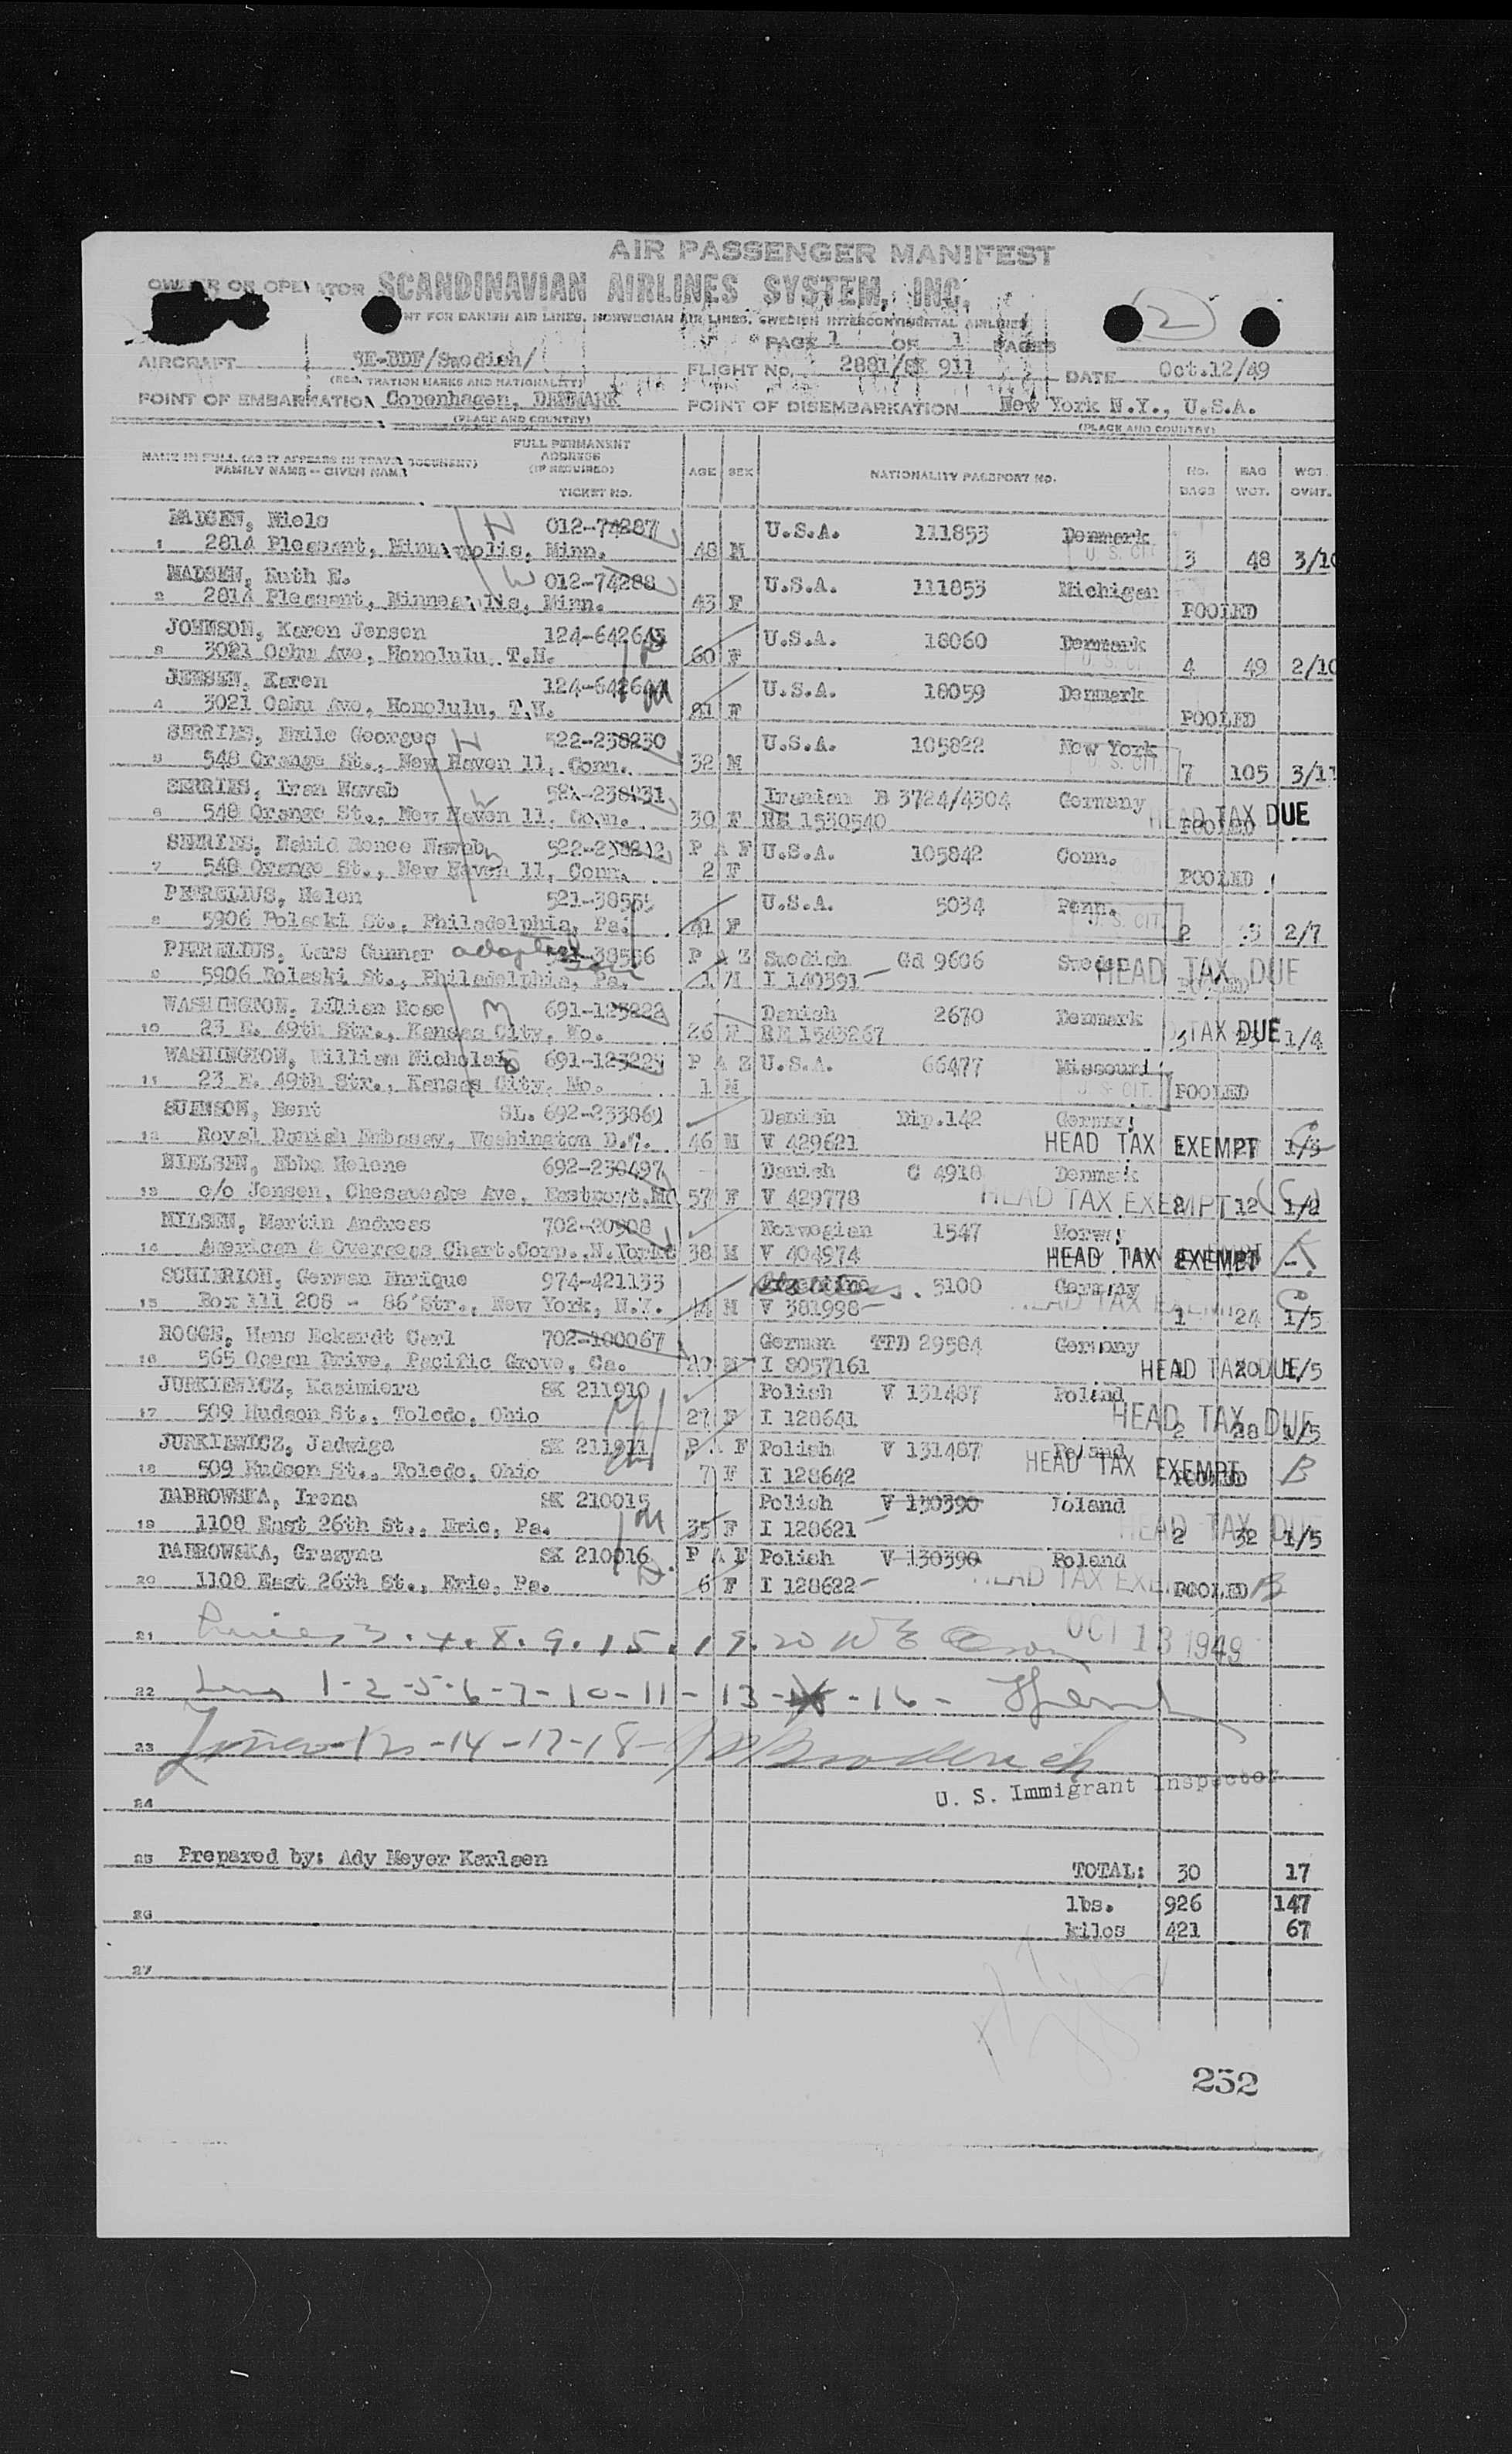 AIR PASSENGER MANIFEST
OWNER OR OPERATOR SCANDINAVIAN AIRLINES SYSTEM, INC.
NT FOR DANISH AIR LINES, NORWEGIAN AIR LINES, SWEDISH INTERCONTINENTAL AIRLINES
(2)
PAGE 1 OF 1 PAGES
AIRCRAFT SE-BDF/Swedish/ FLIGHT No. 2881/SK 911 DATE Oct.12/49
(REGISTRATION MARKS AND NATIONALITY)
POINT OF EMBARKATION Copenhagen, DENMARK POINT OF DISEMBARKATION New York N.Y., U.S.A.
(PLACE AND COUNTRY) (PLACE AND COUNTRY)
NAME IN FULL (AS IT APPEARS IN TRAVEL DOCUMENT) FAMILY NAME -- GIVEN NAME
FULL PERMANENT ADDRESS (IF REQUIRED) TICKET NO. AGE SEX NATIONALITY PASSPORT NO. NO. BAGS BAG WGT. WGT. OVHT.
MADSEN, Niels 012-74287 U.S.A. 111853 Denmark
1 2814 Pleasant, Minneapolis, Minn. 48 M U. S. CIT 3 48 3/10
MADSEN, Ruth E. 012-74288 U.S.A. 111853 Michigan
2 2814 Pleasant, Minneapolis, Minn. 43 F POOLED
JOHNSON, Karen Jensen 124-642645 U.S.A. 18060 Denmark
3 3021 Oahu Ave, Honolulu, T.H. 60 F U. S. CIT 4 49 2/10
JENSEN, Karen 124-642644 U.S.A. 18059 Denmark
4 3021 Oahu Ave, Honolulu, T.H. 81 F POOLED
SERRIES, Emile Georges 522-238230 U.S.A. 105822 New York
5 548 Orange St., New Haven 11, Conn. 32 M U. S. CIT. 7 105 3/11
SERRIES, Iran Navab 522-238231 Iranian B 3724/4304 Germany
6 548 Orange St., New Haven 11, Conn. 30 F RE 1530540 HEAD TAX DUE POOLED
SERRIES, Nahid Renee Navab 522-238232 P A F U.S.A. 105842 Conn.
7 548 Orange St., New Haven 11, Conn. 2 F POOLED
PETRELIUS, Helen 521-38555 U.S.A. 5034 Penn.
8 5906 Polaski St., Philadelphia, Pa. 41 F U. S. CIT. 2 2/7
PETRELIUS, Lars Gunnar adopted son 38556 P A Z Swedish Gd 9606 Sweden
9 5906 Polaski St., Philadelphia, Pa. 1 M I 140391 HEAD TAX DUE
WASHINGTON, Lillian Rose 691-123222 Danish 2670 Denmark
10 23 E. 49th Str., Kansas City, Mo. 26 F RE 1543267 TAX DUE 1/4
WASHINGTON, William Nicholas 691-123223 P A Z U.S.A. 66477 Missouri
11 23 E. 49th Str., Kansas City, Mo. 1 M U. S. CIT. POOLED
SUENSON, Bent SL. 692-233869 Danish Dip.142 Germany
12 Royal Danish Embassy, Washington D.C. 46 M V 429621 HEAD TAX EXEMPT 1/5 C
NIELSEN, Ebba Helene 692-230497 Danish G 4918 Denmark
13 c/o Jensen, Chesapeake Ave, Eastport, Md 57 F V 429778 HEAD TAX EXEMPT 12 1/2
NILSEN, Martin Andreas 702-20908 Norwegian 1547 Norway
14 American & Overseas Chart.Corp., N.York 38 M V 404974 HEAD TAX EXEMPT A
SCHIERICH, German Enrique 974-421133 5100 Germany
15 Box 111 208 - 86'Str., New York, N.Y. 44 M V 381998 HEAD TAX EXEMPT 1 24 1/5 C
ROGGE, Hans Eckardt Carl 702-100067 German TTD 29584 Germany
16 565 Ocean Drive, Pacific Grove, Ca. 20 M I 8057161 HEAD TAX DUE 1/5
JURKIEWICZ, Kazimiera SK 211910 Polish V 131487 Poland
17 509 Hudson St., Toledo, Ohio 27 F I 128641 HEAD TAX DUE 2 28 1/5
JURKIEWICZ, Jadwiga SK 211911 P A F Polish V 131487 Poland
18 509 Hudson St., Toledo, Ohio 7 F I 128642 HEAD TAX EXEMPT POOLED B
DABROWSKA, Irena SK 210015 Polish V 130390 Poland
19 1108 East 26th St., Erie, Pa. 35 F I 128621 HEAD TAX DUE 2 32 1/5
DABROWSKA, Grazyna SK 210016 P A F Polish V 130390 Poland
20 1108 East 26th St., Erie, Pa. 6 F I 128622 HEAD TAX EXEMPT POOLED B
21 Lines 3.4.8.9.15.19.20 OCT 13 1949
22 Lines 1-2-5-6-7-10-11-13- -16-
23 Lines -12-14-17-18-
24 U. S. Immigrant Inspector
25 Prepared by: Ady Meyer Karlsen TOTAL: 30 17
26 lbs. 926 147
kilos 421 67
27
252